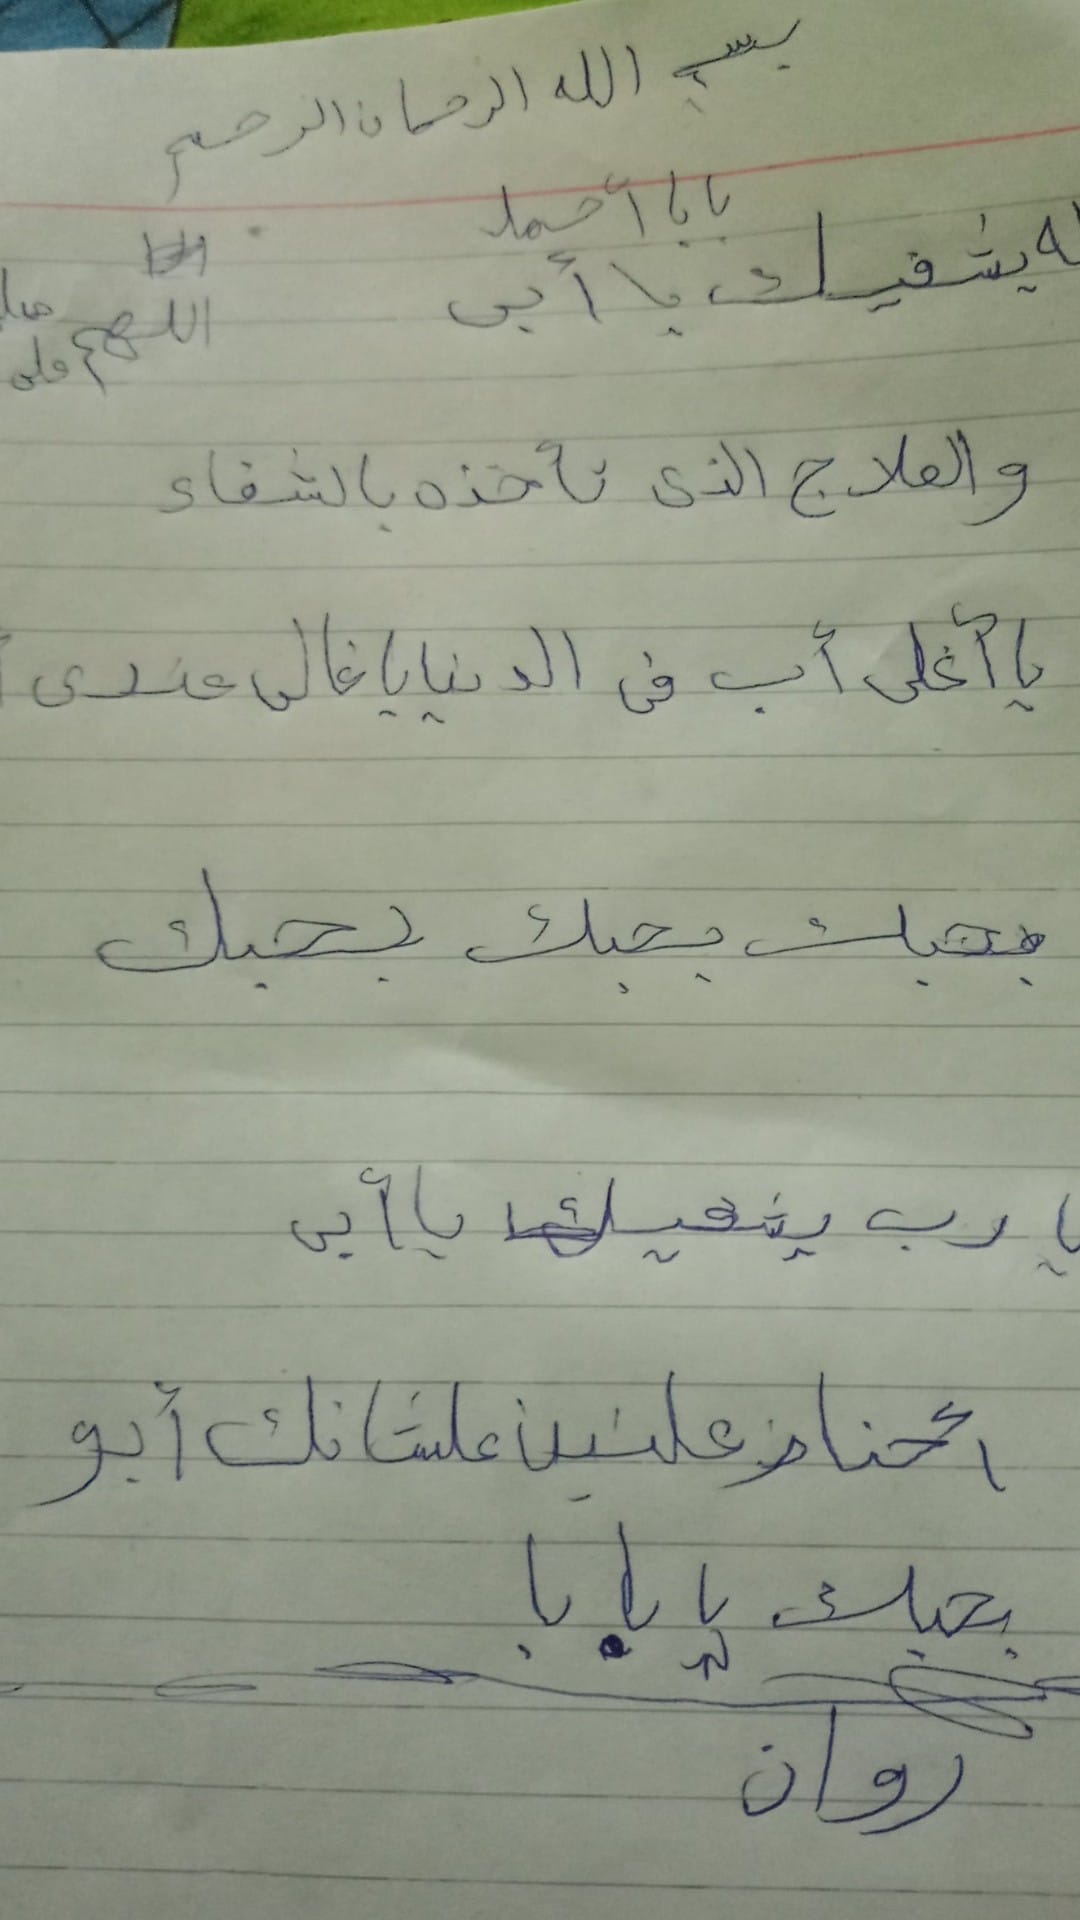 بسم الله الرحمان الرحيم
بابا أحمد
يشفيك يا أبى
اللهم
على
والعلاج الذى تأخذه بالشفاء
يا أغلى أب فى الدنيا يا غالى عندى
بحبك بحبك بحبك
يا رب يشفيك يا أبى
علشانك أبو
بحبك يا بابا
روان